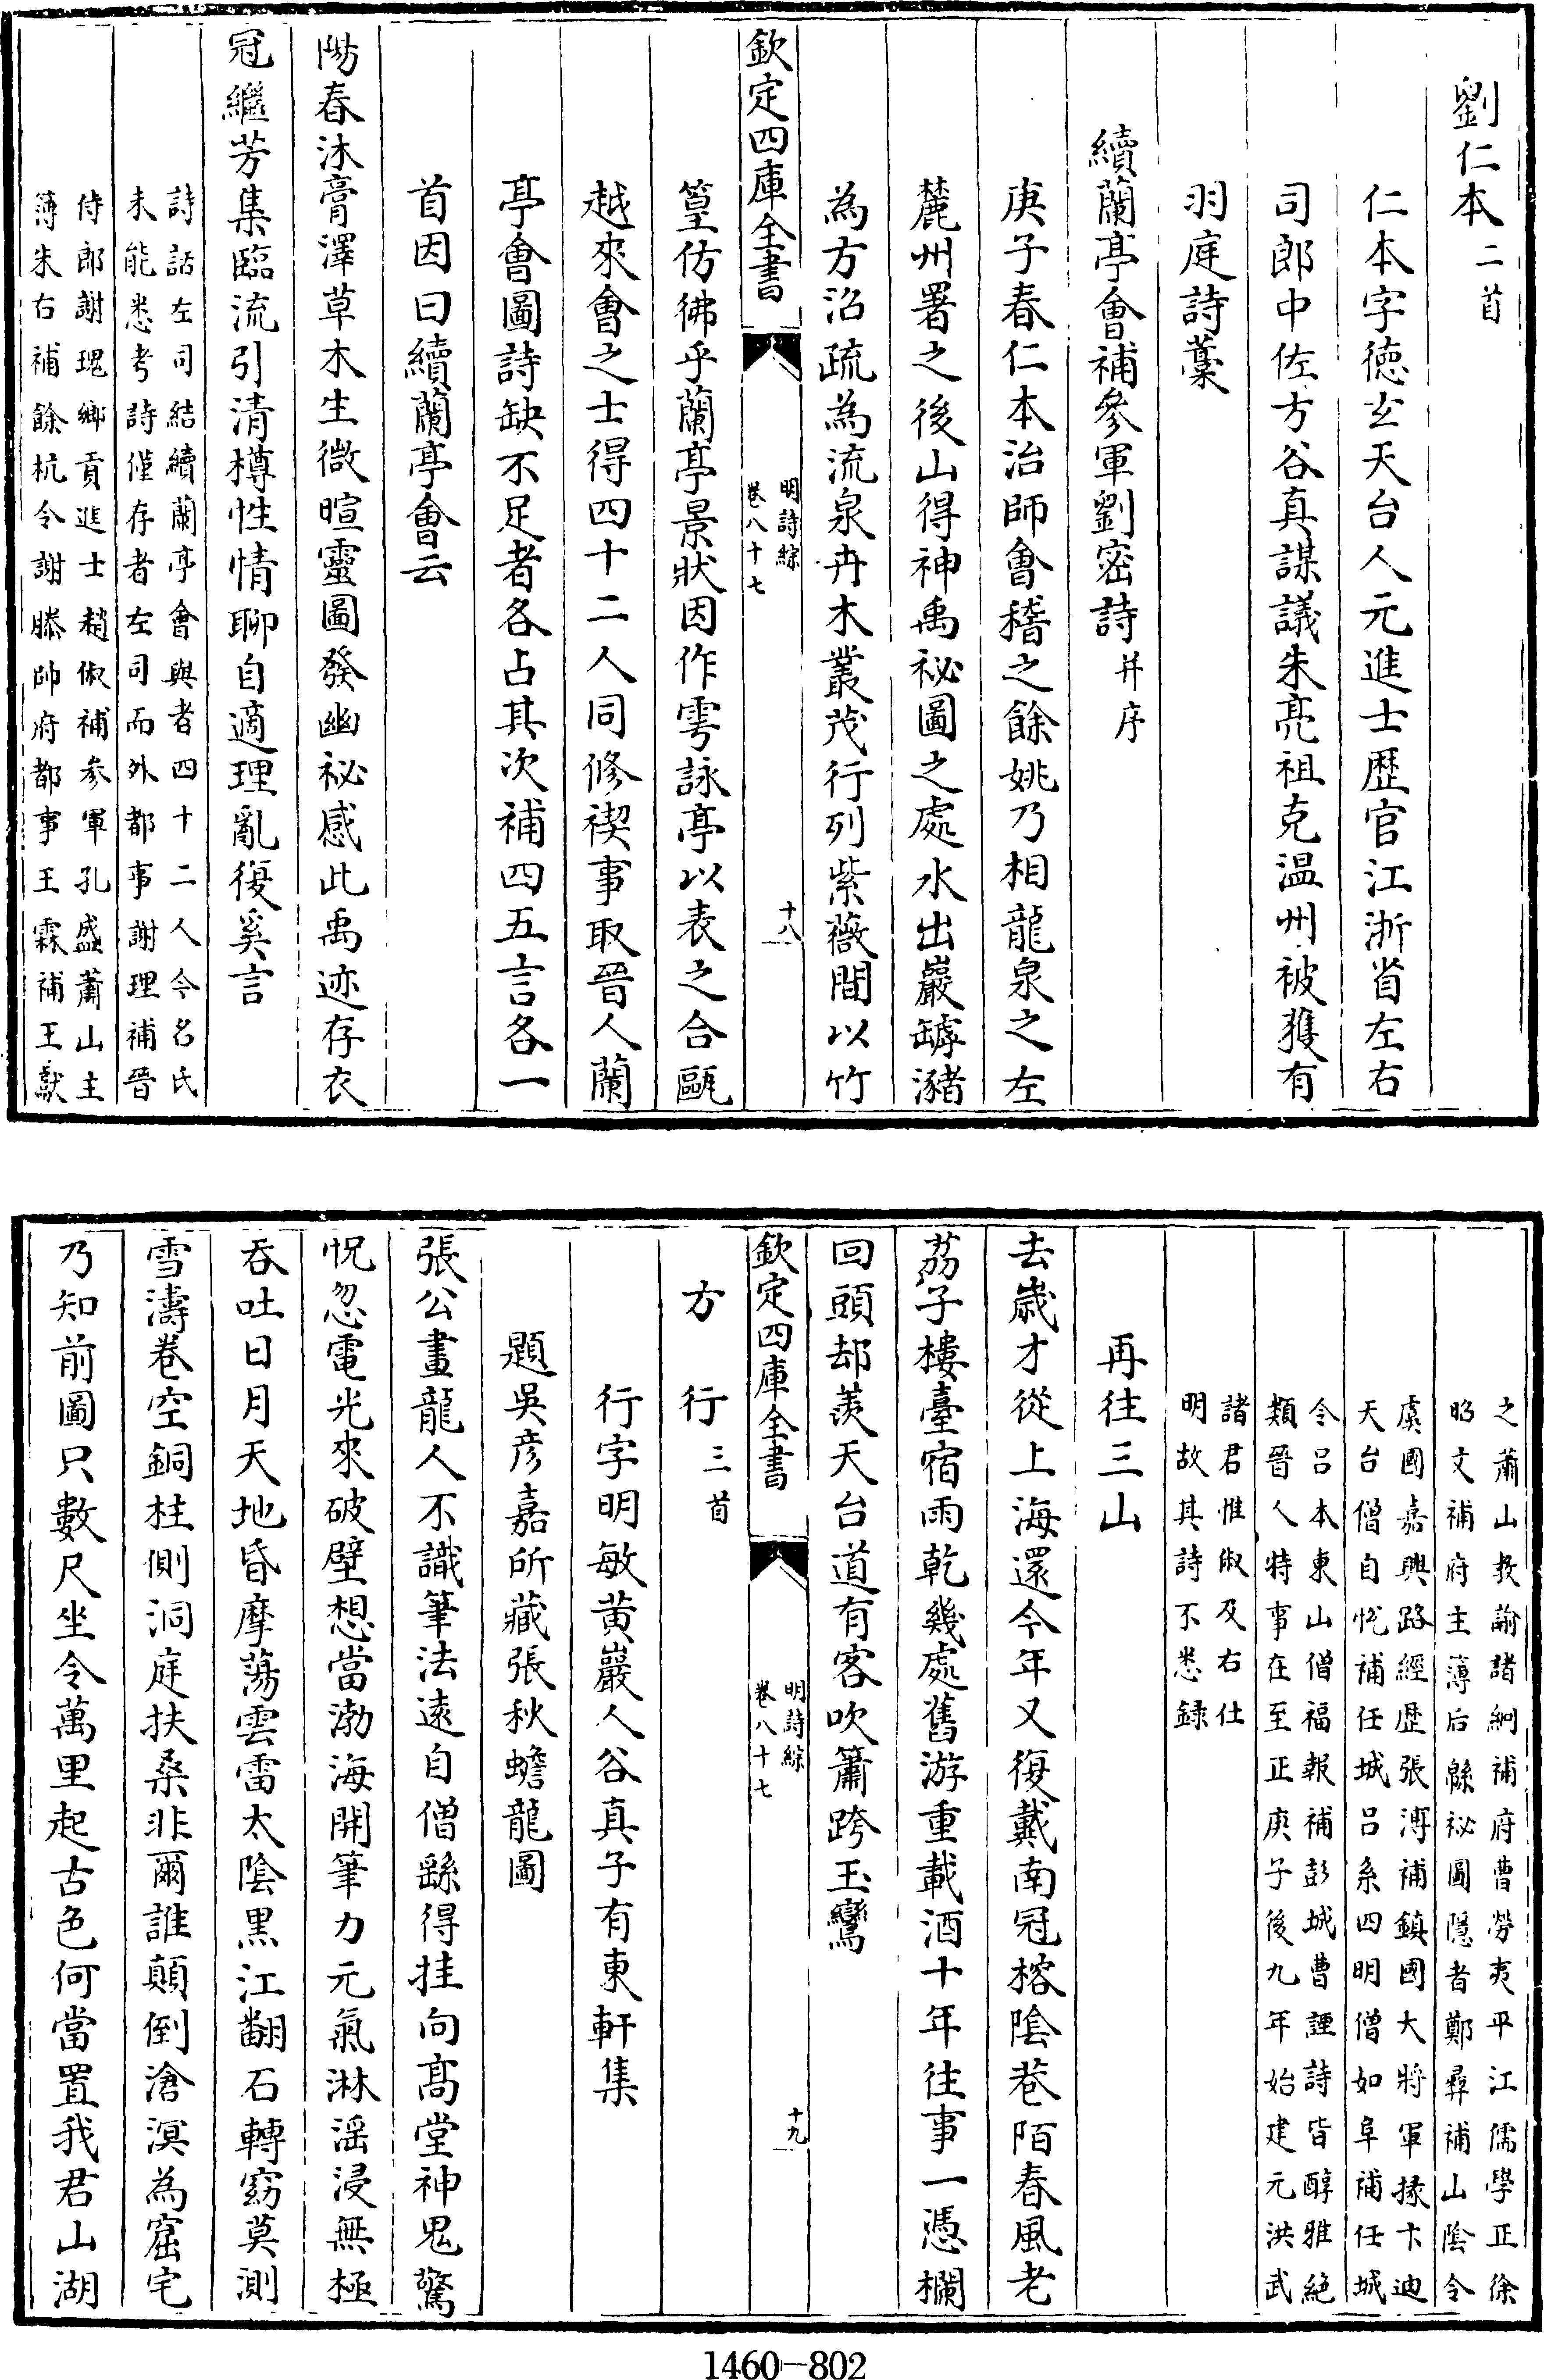 劉仁本二首
仁本字徳玄天台人元進士歴官江浙省左右
司郎中佐方谷真謀議朱亮祖克温州被獲有
羽庭詩藳
續蘭亭會補參軍劉密詩并序
庚子春仁本治師會稽之餘姚乃相龍泉之左
麓州署之後山得神禹祕圖之處水出巖罅瀦
為方沼疏為流泉卉木叢茂行列紫薇間以竹
欽定四庫全書
明詩綜
卷八十七
十八
篁仿彿乎蘭亭景狀因作雩詠亭以表之合甌
越來會之士得四十二人同修禊事取晉人蘭
亭會圖詩缺不足者各占其次補四五言各一
首因曰續蘭亭會云
陽春沐膏澤草木生微暄靈圖發幽祕感此禹迹存衣
冠繼芳集臨流引清樽性情聊自適理亂復奚言
詩話左司結續蘭亭會與者四十二人今名氏
未能悉考詩僅存者左司而外都事謝理補晉
侍郎謝瑰鄉貢進士趙俶補參軍孔盛蕭山主
簿朱右補餘杭令謝滕帥府都事王霖補王獻
之蕭山教諭諸絅補府曹勞夷平江儒學正徐
昭文補府主簿后緜祕圖隱者鄭彞補山隂令
虞國嘉興路經歴張溥補鎮國大將軍掾卞迪
天台僧自恱補任城吕系四明僧如阜補任城
令吕本東山僧福報補彭城曹諲詩皆醇雅絶
類晉人特事在至正庚子後九年始建元洪武
諸君惟俶及右仕
明故其詩不悉録
再往三山
去歲才從上海還今年又復戴南冠榕隂巷陌春風老
荔子樓臺宿雨乾幾處舊游重載酒十年往事一憑欄
回頭却羨天台道有客吹簫跨玉鸞
欽定四庫全書
明詩綜
卷八十七
十九
方行三首
行字明敏黄巖人谷真子有東軒集
題吳彦嘉所藏張秋蟾龍圖
張公畫龍人不識筆法遠自僧繇得挂向髙堂神鬼驚
怳忽電光來破壁想當渤海開筆力元氣淋滛浸無極
吞吐日月天地昏摩蕩雲雷太陰黑江翻石轉窈莫測
雪濤卷空銅柱側洞庭扶桑非爾誰顛倒滄溟為窟宅
乃知前圖只數尺坐令萬里起古色何當置我君山湖
1460-802